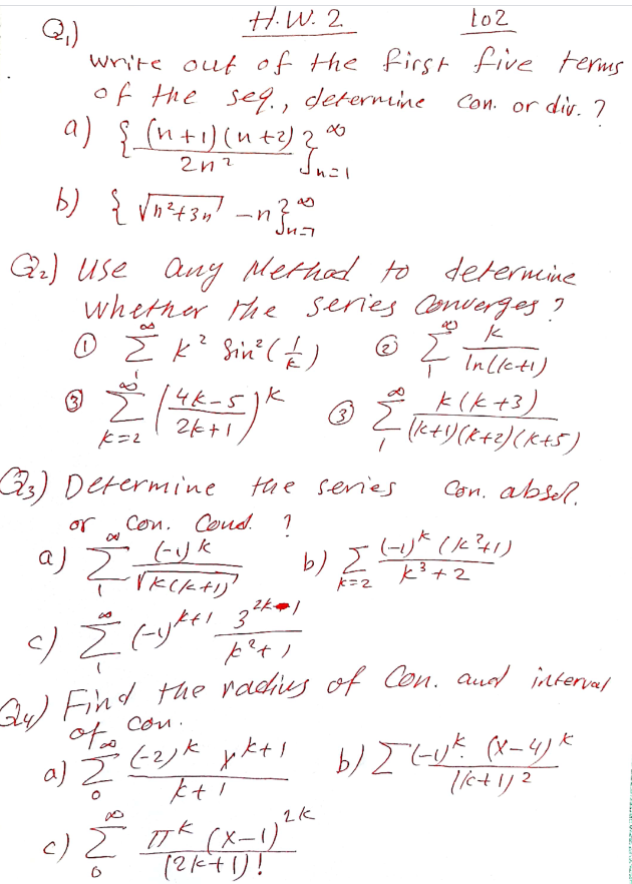 H.W. 2 to2
Q1)
write out of the first five terms
of the seq., determine Con. or div. ?
a) { (n+1)(n+2) / 2n² }∞ n=1
b) { √(n²+3n) - n }∞ n=1
Q2) Use any Method to determine
whether the series Converges ?
① ∞ Σ 1 k² Sin² (1/k) ② ∞ Σ 1 k / ln(k+1)
③ ∞ Σ k=2 ( 4k-5 / 2k+1 )^k ③ ∞ Σ 1 k(k+3) / (k+1)(k+2)(k+5)
Q3) Determine the series Con. absol.
or Con. Cond. ?
a) ∞ Σ 1 (-1)^k / √(k(k+1)) b) Σ k=2 (-1)^k (k²+1) / k³+2
c) ∞ Σ 1 (-1)^(k+1) 3^(2k-1) / k²+1
Q4) Find the radius of Con. and interval
of Con.
a) ∞ Σ 0 (-2)^k x^(k+1) / k+1 b) Σ (-1)^k (x-4)^k / (k+1)²
c) ∞ Σ 0 π^k (x-1)^(2k) / (2k+1)!